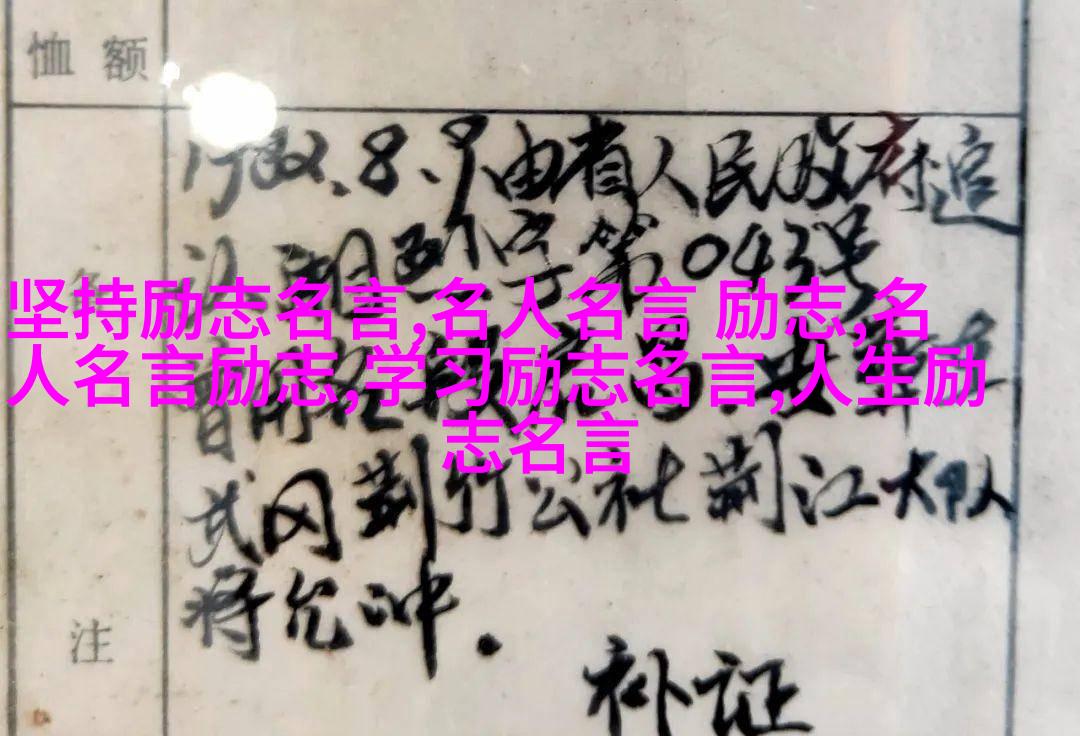 恤额
1982.8.9由省人民政府追
认,湘烈字第043号
坚持励志名言,名人名言 励志,名
人名言励志,学习励志名言,人生励
志名言
武冈荆竹公社荆江大队
蒋允冲.
注
补证